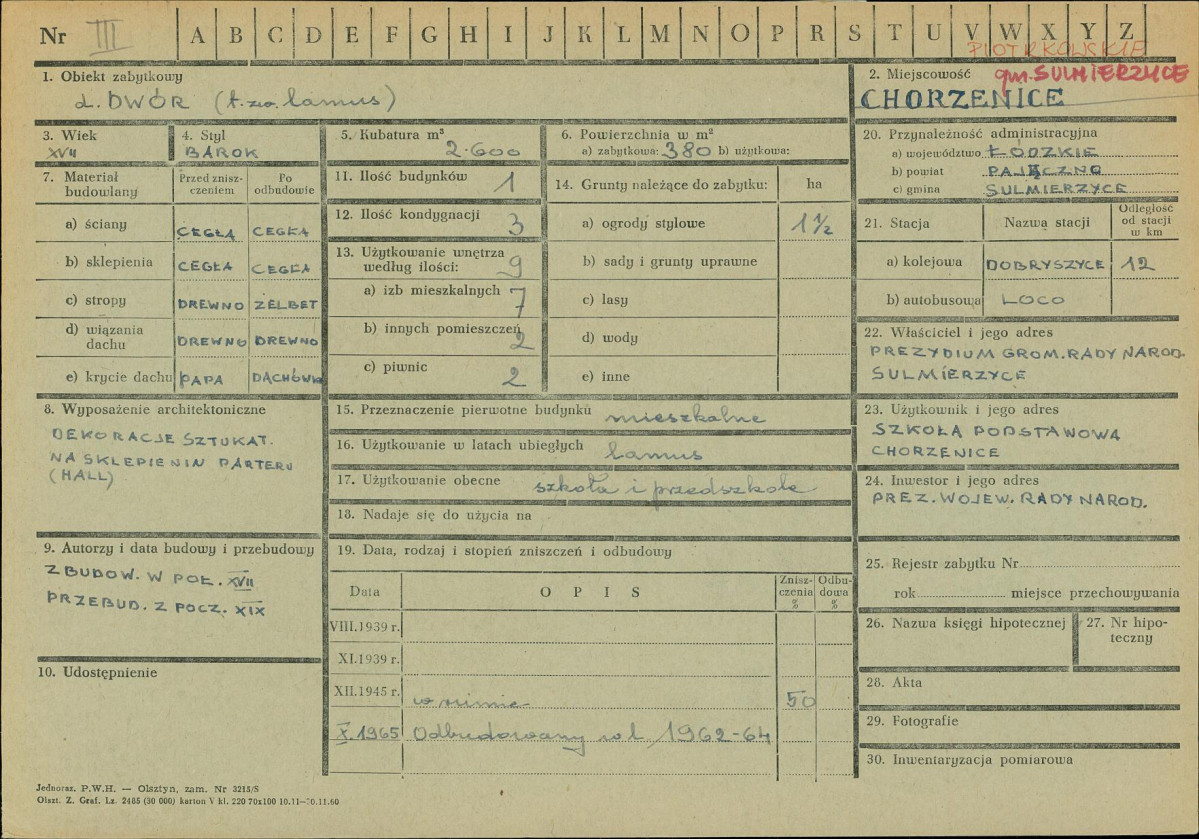 Nr III A B C D E F G H I J K L M N O P R S T U V W X Y Z
PIOTRKOWSKIE
1. Obiekt zabytkowy
2. DWÓR (t.zw. lamus)
2. Miejscowość gm. SULMIERZYCE
CHORZENICE
3. Wiek
XVII
4. Styl
BAROK
5. Kubatura m³
2.600
6. Powierzchnia w m²
a) zabytkowa: 380 b) użytkowa:
7. Materiał budowlany
Przed znisz-
czeniem
Po
odbudowie
a) ściany CEGŁA CEGŁA
b) sklepienia CEGŁA CEGŁA
c) stropy DREWNO ŻELBET
d) wiązania
dachu DREWNO DREWNO
e) krycie dachu PAPA DACHÓWKA
8. Wyposażenie architektoniczne
DEKORACJE SZTUKAT.
NA SKLEPIENIU PARTERU
(HALL)
9. Autorzy i data budowy i przebudowy
ZBUDOW. W POŁ. XVII
PRZEBUD. Z POCZ. XIX
10. Udostępnienie
11. Ilość budynków 1
12. Ilość kondygnacji 3
13. Użytkowanie wnętrza
według ilości: 9
a) izb mieszkalnych 7
b) innych pomieszczeń
2
c) piwnic 2
14. Grunty należące do zabytku: ha
a) ogrody stylowe 1 1/2
b) sady i grunty uprawne
c) lasy
d) wody
e) inne
15. Przeznaczenie pierwotne budynku mieszkalne
16. Użytkowanie w latach ubiegłych lamus
17. Użytkowanie obecne szkoła i przedszkole
18. Nadaje się do użycia na
19. Data, rodzaj i stopień zniszczeń i odbudowy
Data OPIS Znisz-
czenia
% Odbu-
dowa
%
VIII.1939 r.
XI.1939 r.
XII.1945 r. w ruinie 50
X.1965 Odbudowany w l. 1962-64
20. Przynależność administracyjna
a) województwo ŁÓDZKIE
b) powiat PAJĘCZNO
c) gmina SULMIERZYCE
21. Stacja Nazwa stacji Odległość
od stacji
w km
a) kolejowa DOBRYSZYCE 12
b) autobusowa LOCO
22. Właściciel i jego adres
PREZYDIUM GROM. RADY NAROD.
SULMIERZYCE
23. Użytkownik i jego adres
SZKOŁA PODSTAWOWA
CHORZENICE
24. Inwestor i jego adres
PREZ. WOJEW. RADY NAROD.
25. Rejestr zabytku Nr
rok miejsce przechowywania
26. Nazwa księgi hipotecznej
27. Nr hipo-
teczny
28. Akta
29. Fotografie
30. Inwentaryzacja pomiarowa
Jednoraz. P.W.H. — Olsztyn, zam. Nr 3215/S
Olszt. Z. Graf. Lz. 2485 (30 000) karton V kl. 220 70x100 10.11—30.11.60